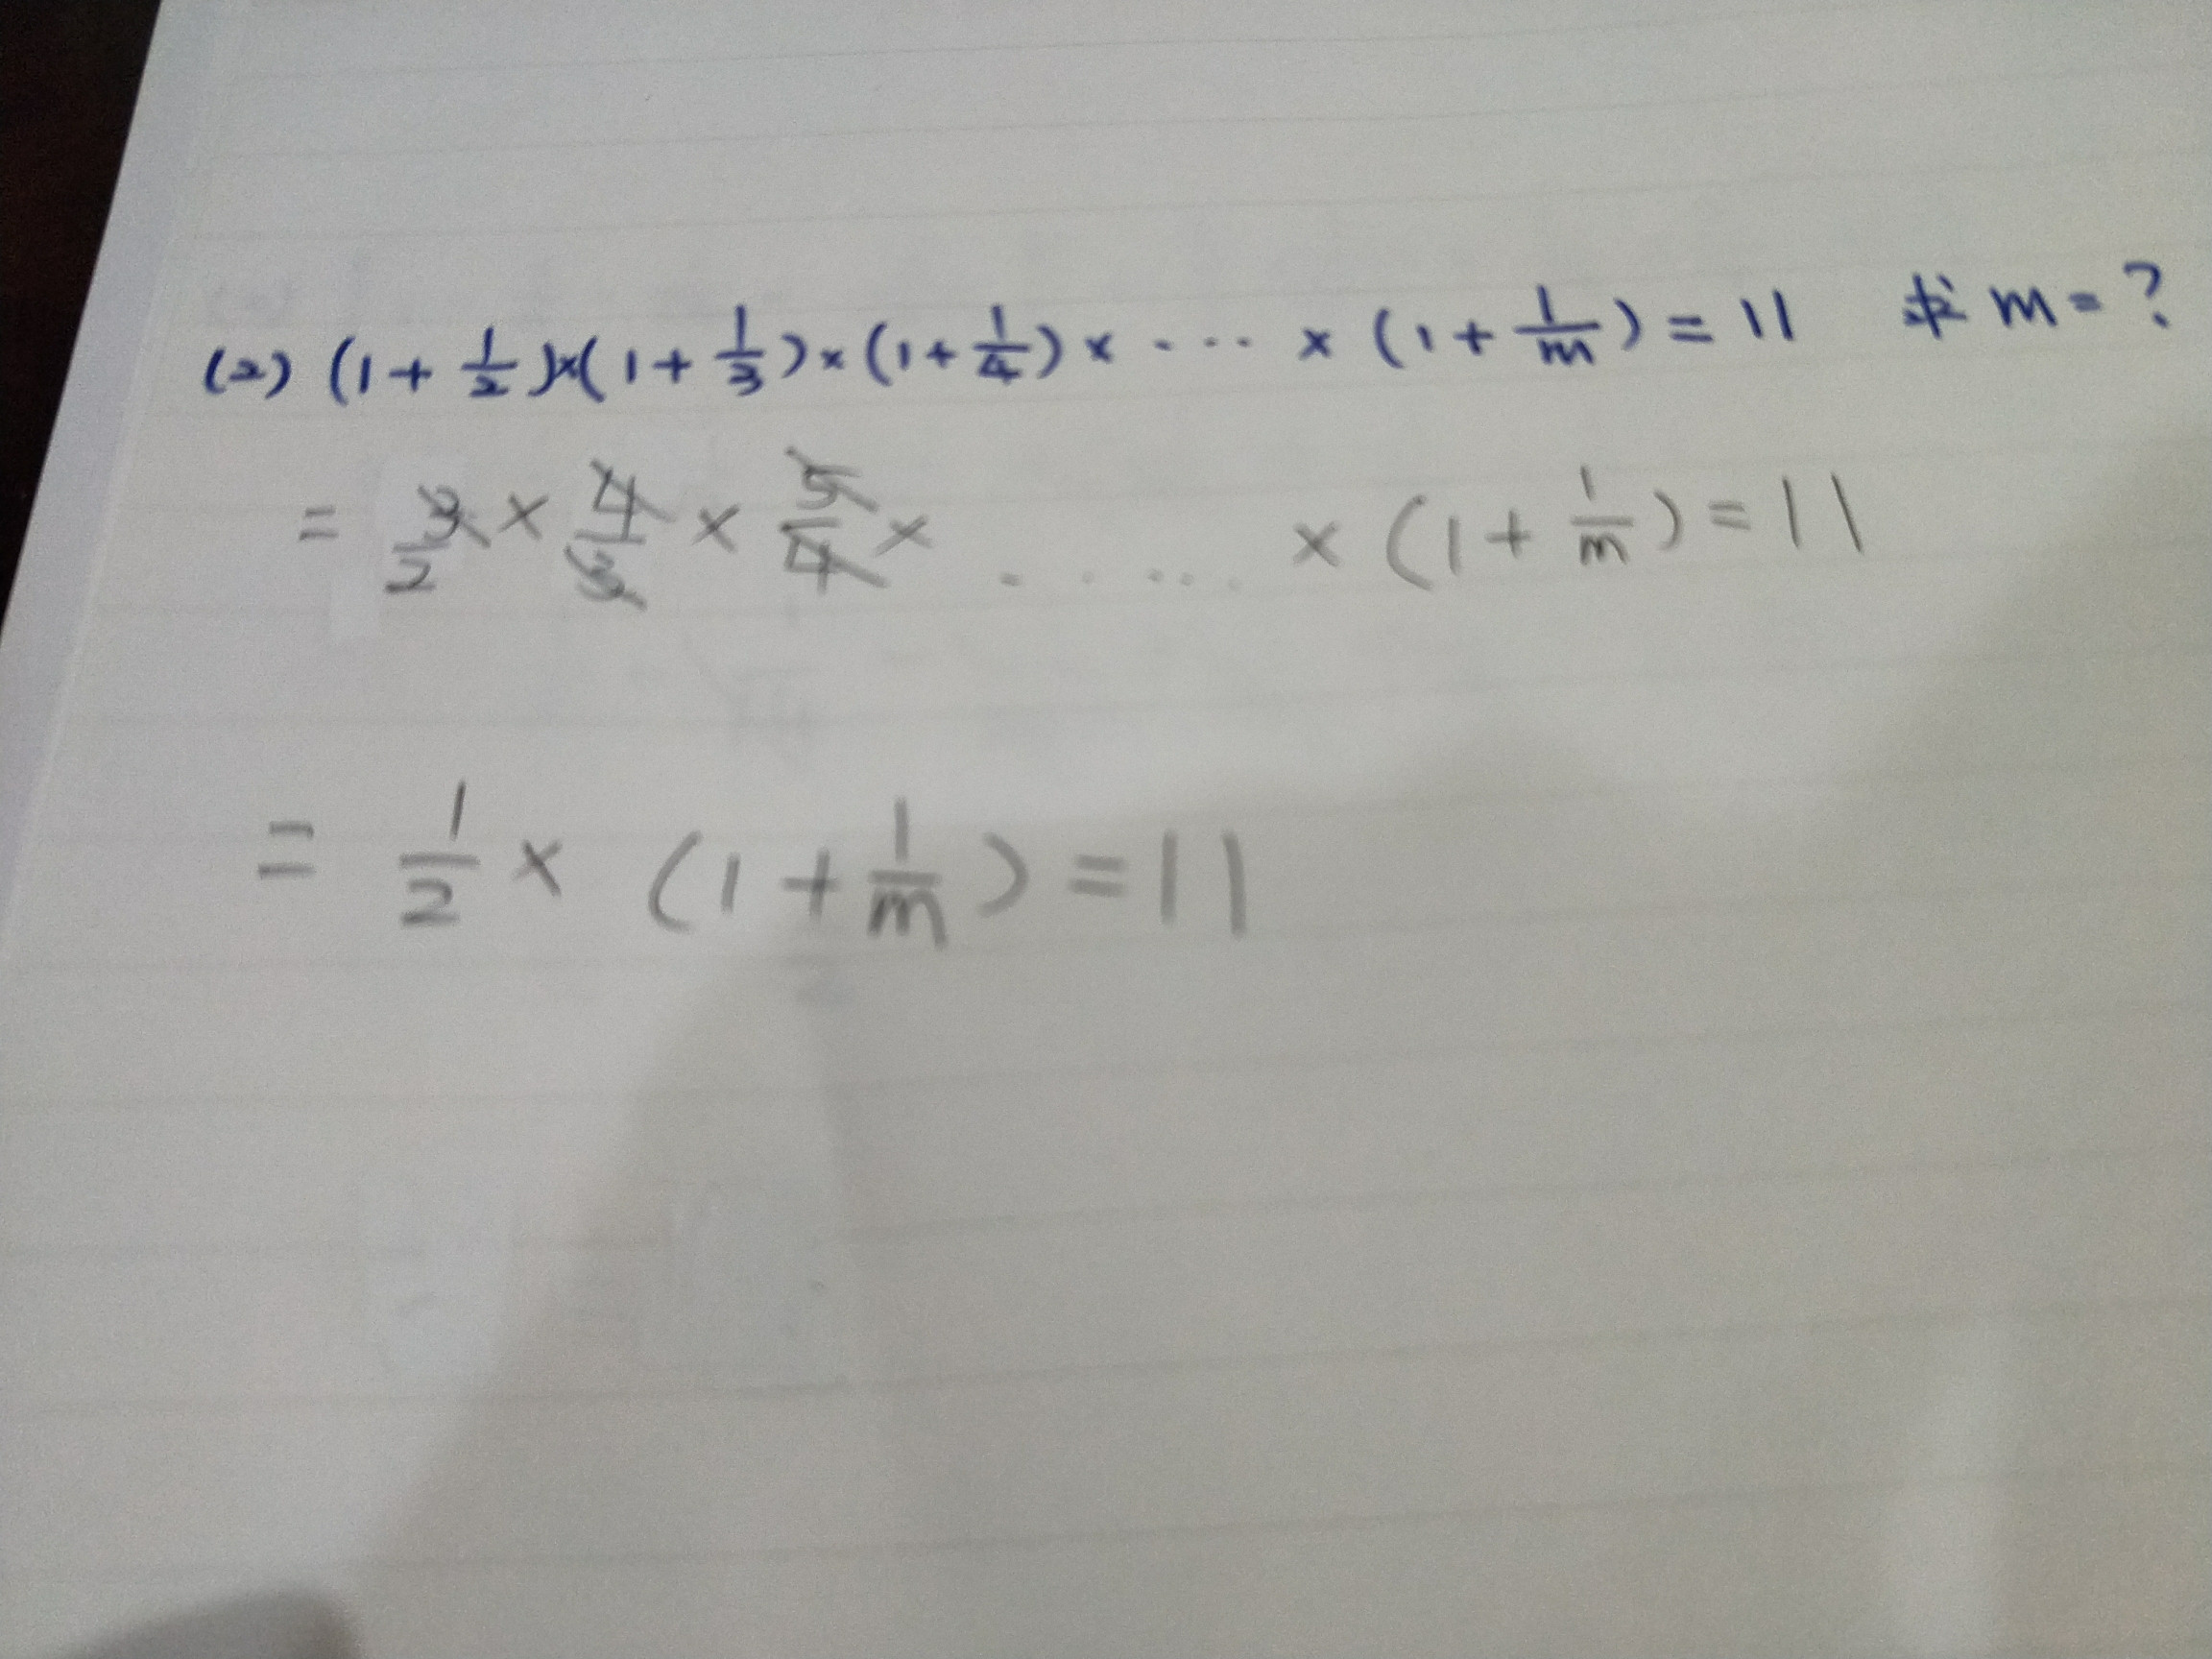 (2) (1+1/2)×(1+1/3)×(1+1/4)×・・・・×(1+1/m)=11 求 m=?
= 3/2 × 4/3 × 5/4 × ...... ×(1+1/m)=11
= 1/2 × (1+1/m)=11